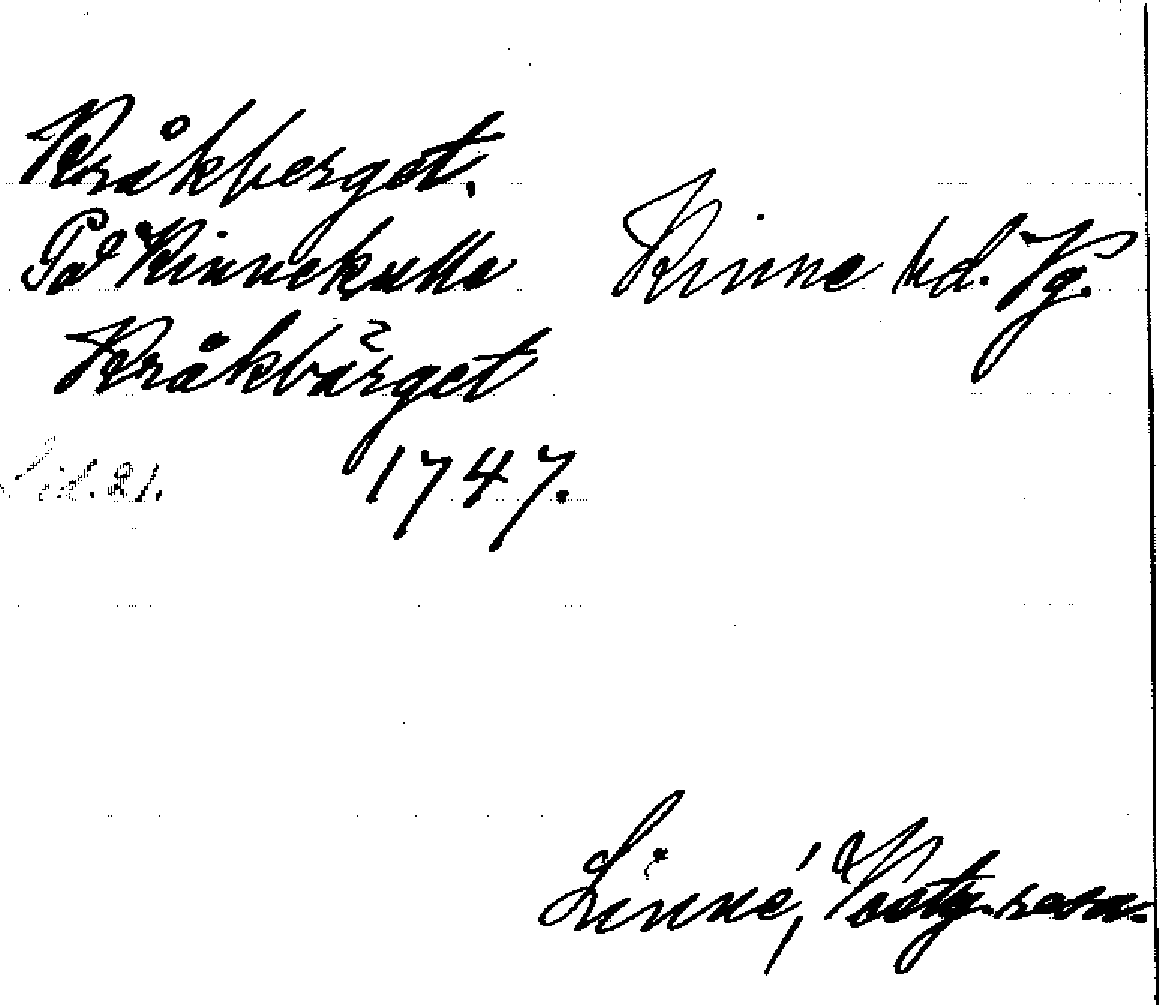 Kråkberget.
På Kinnekulle
Kinne hd. Vg.
Kråkbärget
Sid. 21. 1747.
Linné, Västg. resa.